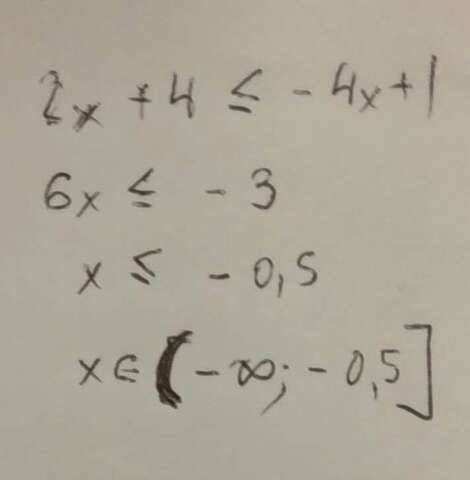 2x + 4 ≤ - 4x + 1
6x ≤ - 3
x ≤ - 0,5
x ∈ (- ∞; - 0,5]